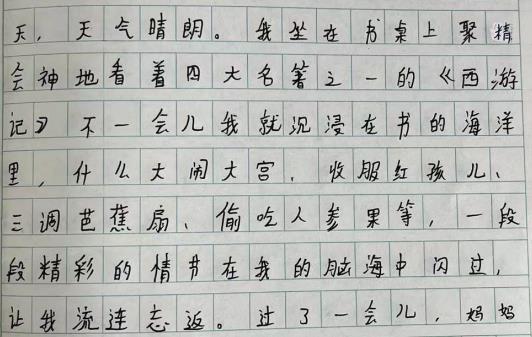 天，天气晴朗。我坐在书桌上聚精
会神地看着四大名著之一的《西游
记》不一会儿我就沉浸在书的海洋
里，什么大闹大宫、收服红孩儿、
三调芭蕉扇、偷吃人参果等，一段
段精彩的情节在我的脑海中闪过，
让我流连忘返。过了一会儿，妈妈